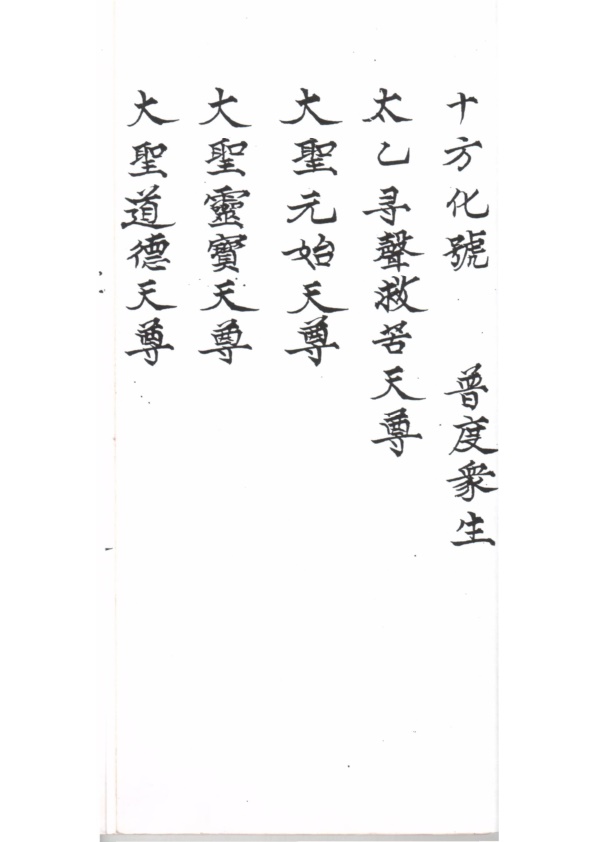 十方化號 普度衆生
太乙寻聲救苦天尊
大聖元始天尊
大聖靈寳天尊
大聖道德天尊